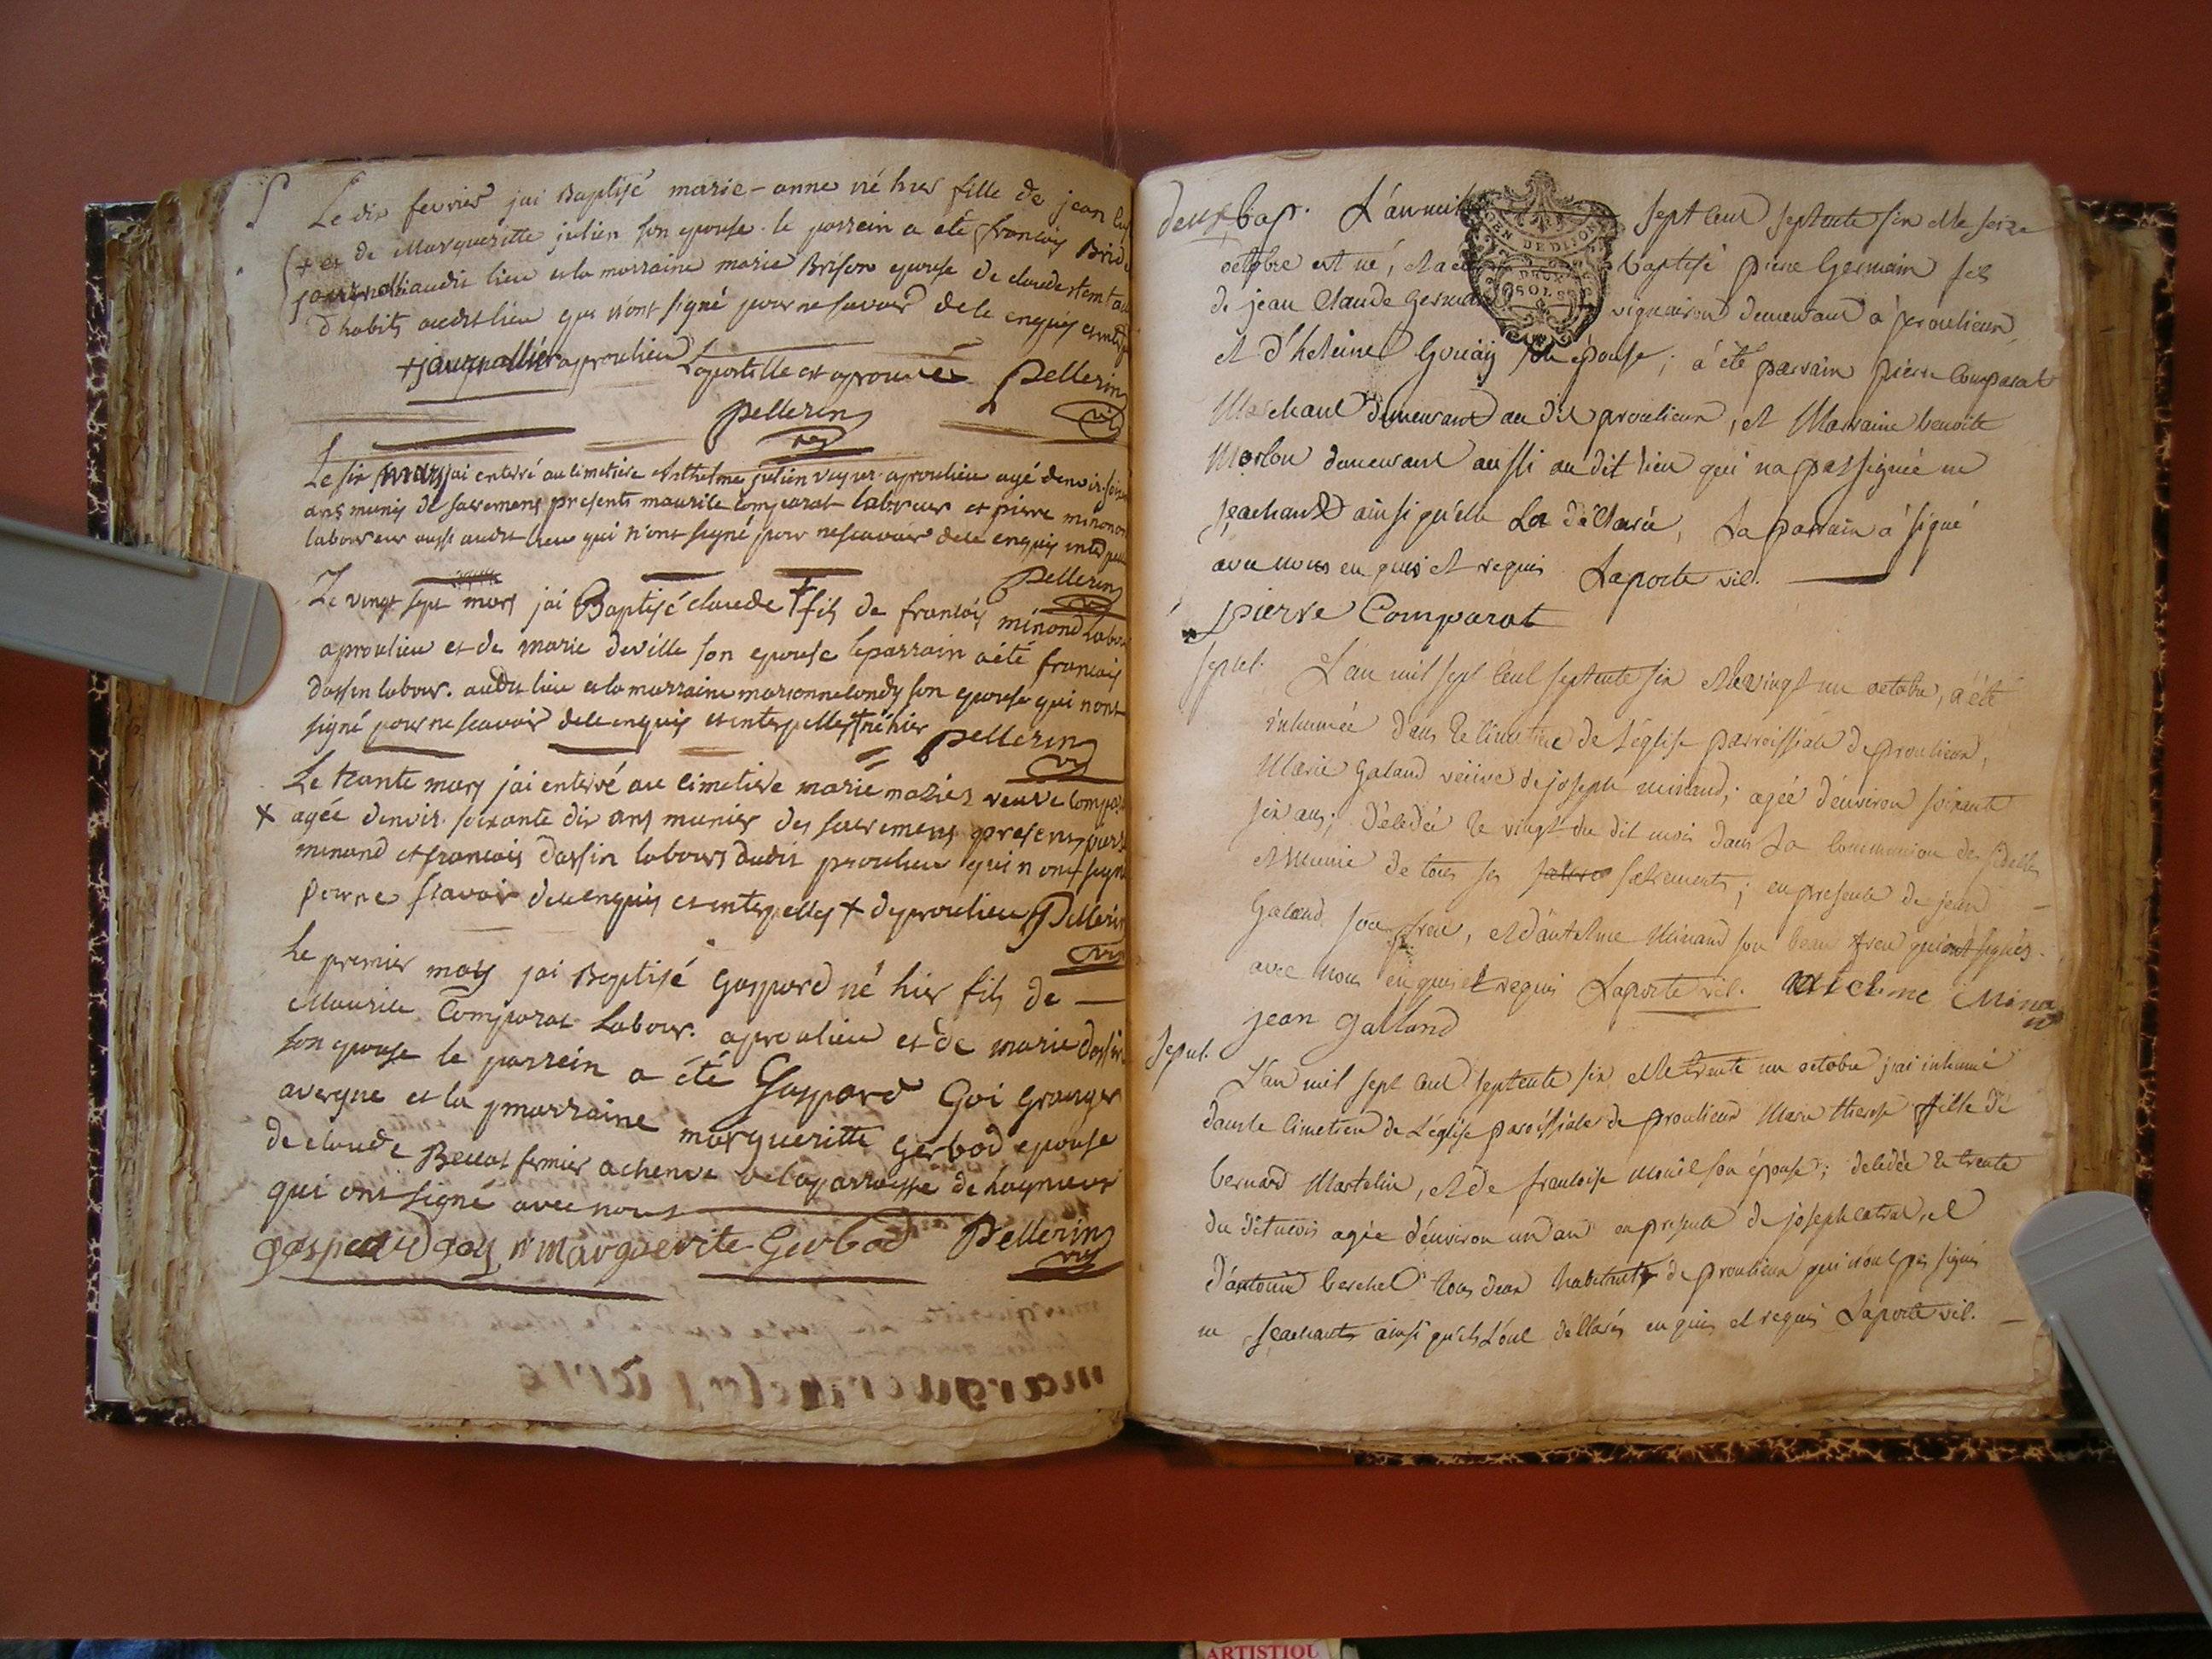 Le dix fevrier jai Baptisé marie-anne né hier fille de jean
+ et de Margueritte julien son epouse. le parrein a eté francois
audit lieu et la marraine marie Brison epouse de claude
d'habits audit lieu qui n'ont signé pour ne savoir de le enquis
+ journallier a proulieu L'apostille est aprouvée Pellerin
pellerin vic
Le six mars jai enterré au cimetiere Anthelme julien a proulieu agé denvir.
ans munis de sacremens presents maurile comparat laboureur et pierre
laboureur aussi audit lieu qui n'ont signé pour ne scavoir de le enquis
Pellerin vic
Le vingt sept mars jai Baptisé claude + fils de francois minand
a proulieu et de marie deville son epouse le parrain a eté francois
dassin labour. audit lieu et la marraine son epouse qui n'ont
signé pour ne scavoir de le enquis et interpellés + né hier Pellerin
vic
Le trante mars jai enterré au cimetiere marie veuve
+ agée denvir. soixante dix ans munies des sacremens presens
minand et francois dassin labours dudit proulieu qui n'ont
pour ne scavoir de le enquis et interpellés + de proulieu Pellerin
vic
Le premier jai Baptisé Gaspard né hier fils de
Maurile Comparat Labour. a proulieu et de marie dassin
son epouse le parrein a été Gaspard Goi granger
et la marraine margueritte Gerbod epouse
de claude fermier a de la parroisse de lagnieu
qui ont signé avec nous
gaspard goy marguerite Gerbod Pellerin
vic
bap. L'an mil sept cent septente six et le seize
GEN DE DIJON
DEUX
SOLS
octobre est né, et a été baptisé pierre Germain fils
de jean Claude Germain vigneron demeurant à proulieu
et d'heleine Gouay son épouse; à été parrain pierre Comparat
Marchant demeurant au dit proulieu, et Marraine benoite
Morlon demeurant aussi au dit lieu qui na pas signée ne
sçachant ainsi qu'elle La déclaré, La parrain à signé
avec nous enquis et requis Laporte vic.
pierre Comparat
sepul. L'an mil sept cent septente six et le vingt un octobre, a été
inhumée dans le cimetiere de l'église parroissiale de proulieu,
Marie Galand veuve de joseph minand; agée d'environ soixante
six ans; décédée le vingt du dit mois dans La Communion des fidelles
et munie de tous ses sacrements; en presence de jean
Galand son frere, et d'antelme Minand son beau frere qui ont signés
avec nous enquis et requis Laporte vic. Minan
jean galland
Sepul. L'an mil sept cent septente six et le trente un octobre j'ai inhumé
dans le cimetiere de L'église paroissiale de proulieu Marie therese fille de
bernard Martelin, et de francoise son épouse; décédée le trente
du dit mois agée d'environ un an en presence de joseph et
d'antoine berchet tous deux habitants de proulieu qui n'ont pas signés
ne sçachants ainsi qu'ils L'ont déclarés enquis et requis Laporte vic.
ARTISTIQU